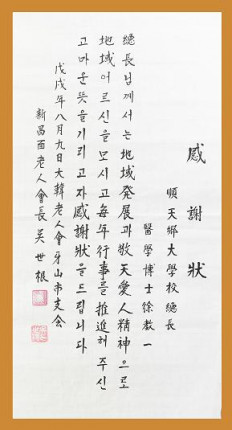 感謝狀
順天鄕大學校總長
醫學博士徐敎一
總長님께서는地域發展과敬天愛人精神으로
地域어르신을모시고每年行事를推進해주신
고마운뜻을기리고자感謝狀을드립니다
戊戌年八月九日大韓老人會牙山市支会
新昌面老人會長吳世根